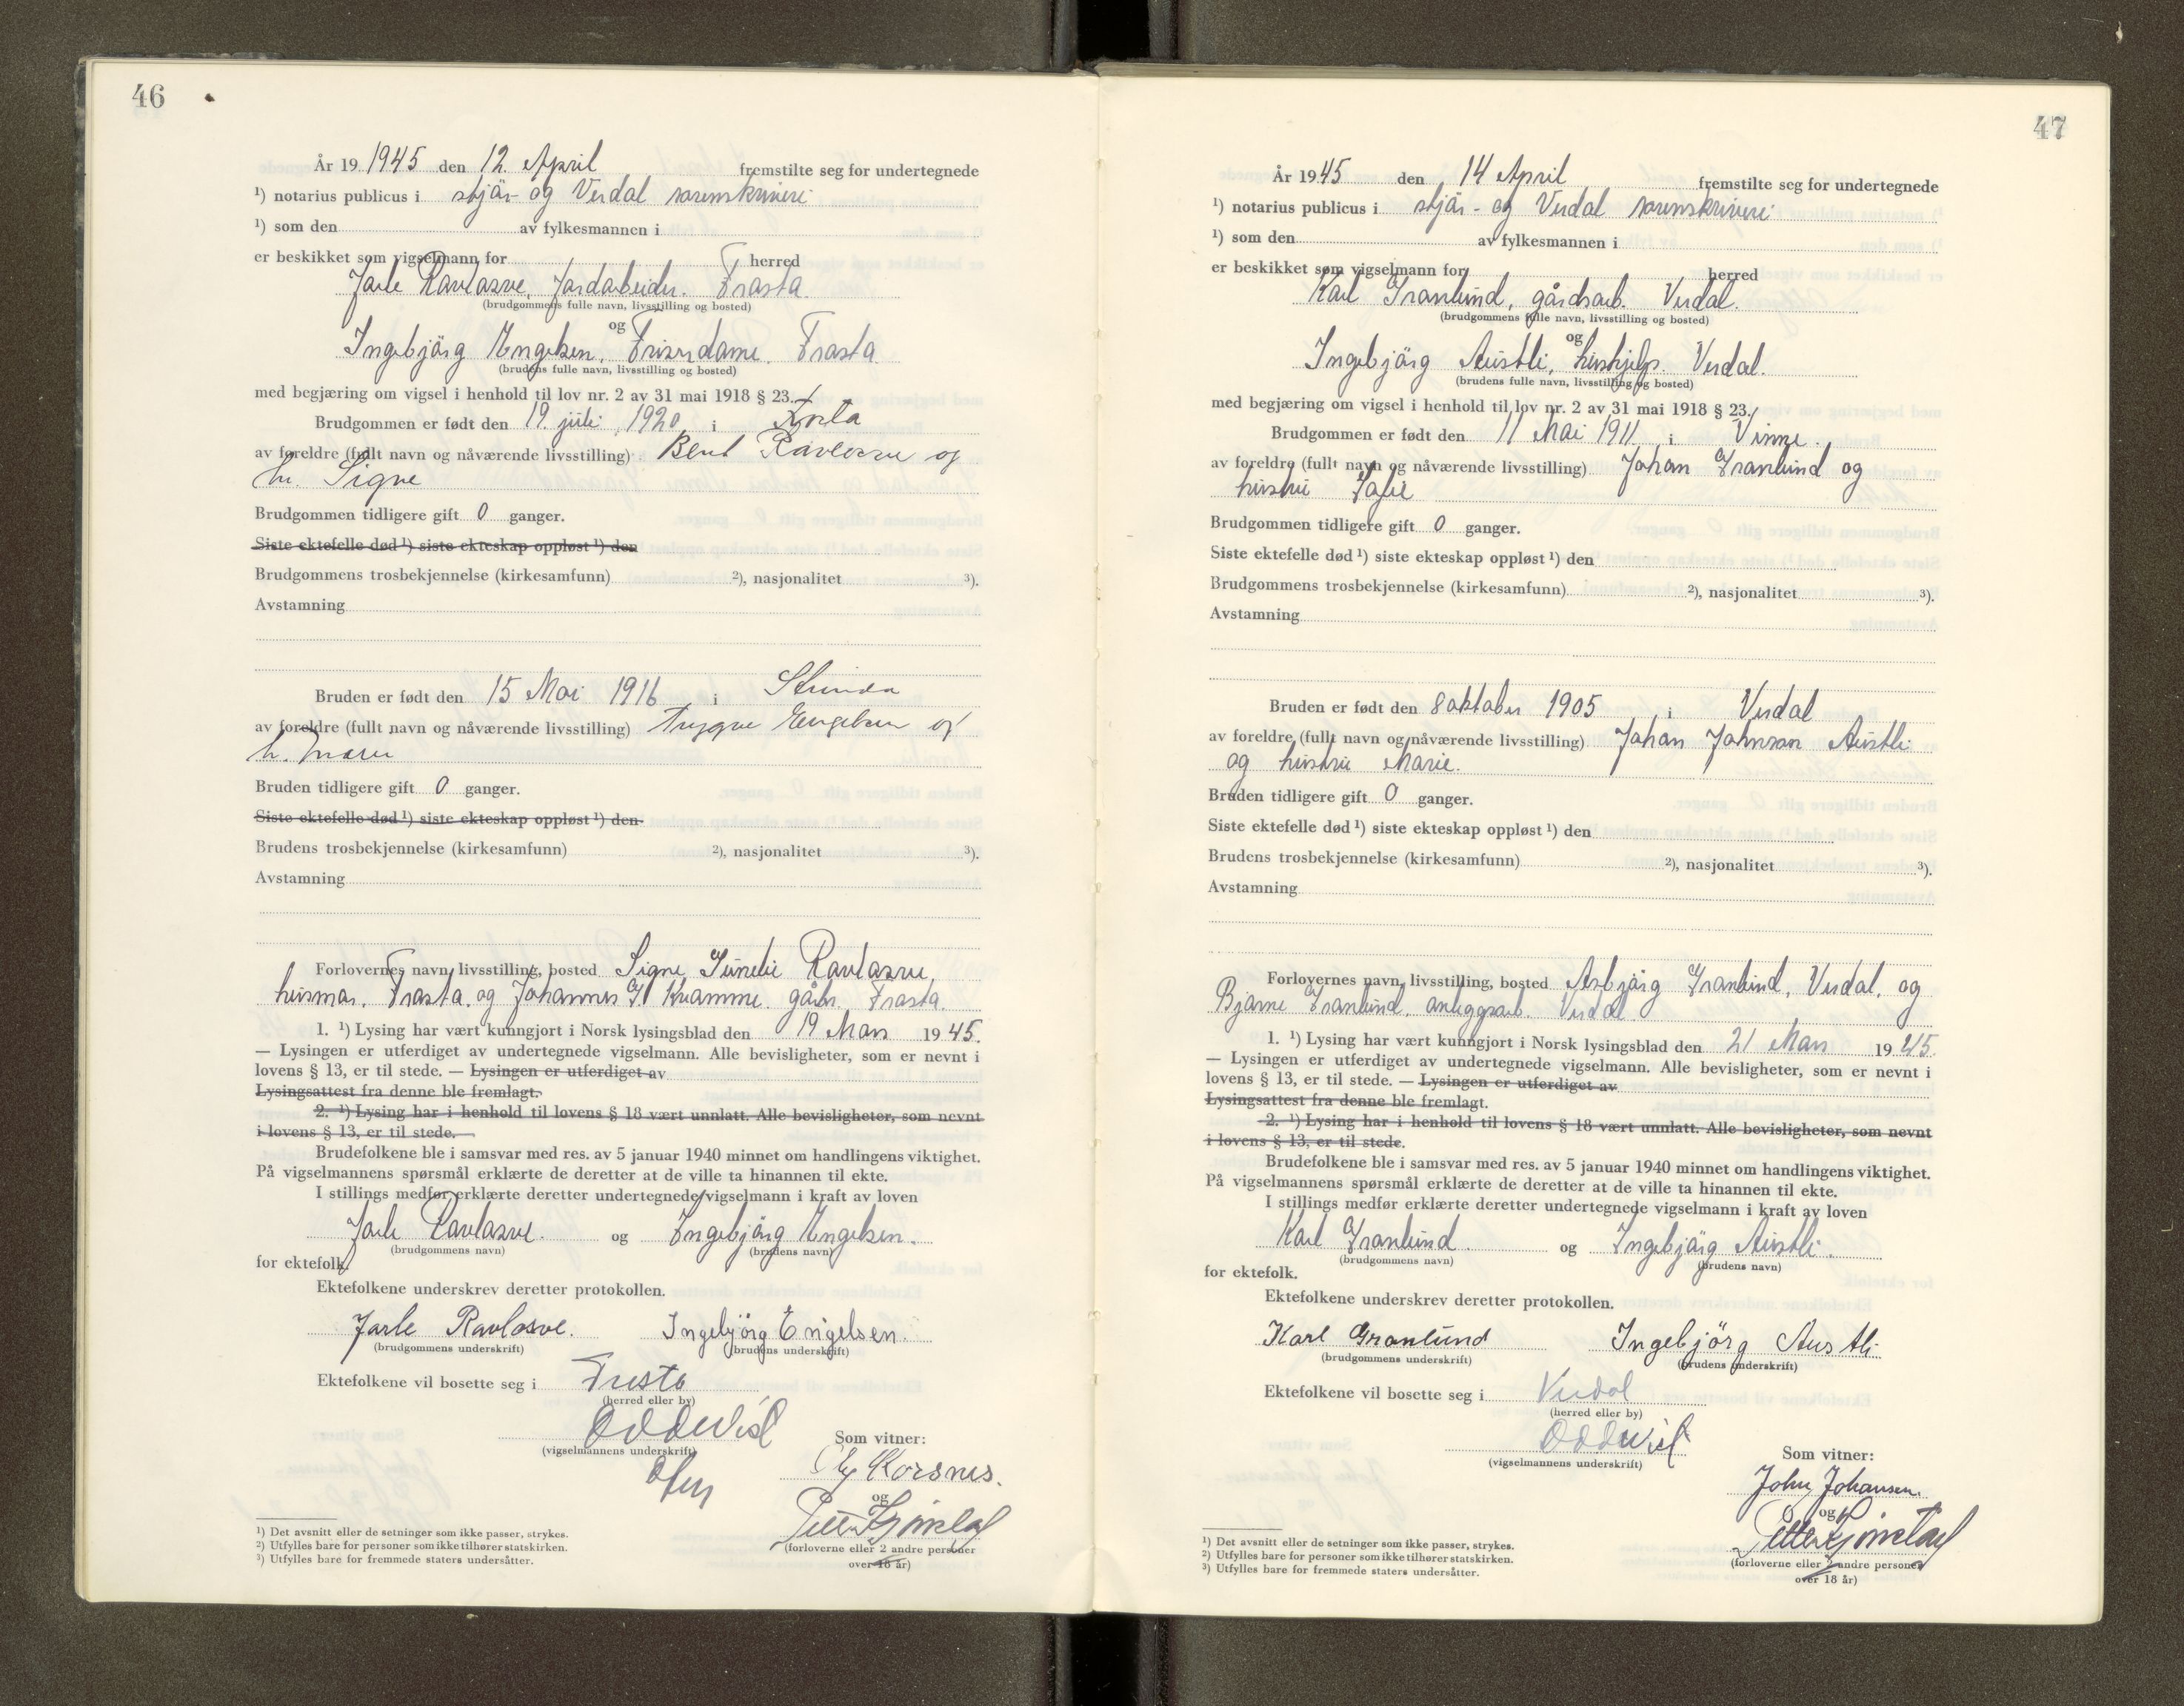 46
År 19 1945 den 12. April fremstilte seg for undertegnede
¹) notarius publicus i stjør- og Verdal sorenskriveri
¹) som den av fylkesmannen i
er beskikket som vigselmann for herred
Jarle Ravlosve, Jordarbeider. Frosta.
(brudgommens fulle navn, livsstilling og bosted)
og
Ingebjørg Engelsen. Friserdame. Frosta
(brudens fulle navn, livsstilling og bosted)
med begjæring om vigsel i henhold til lov nr. 2 av 31 mai 1918 § 23.
Brudgommen er født den 19. juli 1920 i Frosta
av foreldre (fullt navn og nåværende livsstilling) Bent Ravlosve og
h. Signe
Brudgommen tidligere gift 0 ganger.
Siste ektefelle død ¹) siste ekteskap oppløst ¹) den
Brudgommens trosbekjennelse (kirkesamfunn) ²), nasjonalitet ³).
Avstamning
Bruden er født den 15 Mai 1916 i Strinda
av foreldre (fullt navn og nåværende livsstilling) Trygve Engelsen og
h. Maren
Bruden tidligere gift 0 ganger.
Siste ektefelle død ¹) siste ekteskap oppløst ¹) den
Brudens trosbekjennelse (kirkesamfunn) ²), nasjonalitet ³).
Avstamning
Forlovernes navn, livsstilling, bosted Signe Ravlosve,
husmor. Frosta. og Johannes gårbr. Frosta.
1. ¹) Lysing har vært kunngjort i Norsk lysingsblad den 19 Mars 1945.
— Lysingen er utferdiget av undertegnede vigselmann. Alle bevisligheter, som er nevnt i
lovens § 13, er til stede. — Lysingen er utferdiget av
Lysingsattest fra denne ble fremlagt.
2. ¹) Lysing har i henhold til lovens § 18 vært unnlatt. Alle bevisligheter, som nevnt
i lovens § 13, er til stede.
Brudefolkene ble i samsvar med res. av 5 januar 1940 minnet om handlingens viktighet.
På vigselmannens spørsmål erklærte de deretter at de ville ta hinannen til ekte.
I stillings medfør erklærte deretter undertegnede vigselmann i kraft av loven
Jarle Ravlosve. og Ingebjørg Engelsen.
(brudgommens navn) (brudens navn)
for ektefolk.
Ektefolkene underskrev deretter protokollen.
Jarle Ravlosve. Ingebjörg Engelsen.
(brudgommens underskrift) (brudens underskrift)
Ektefolkene vil bosette seg i Frosta
(herred eller by)
(vigselmannens underskrift)
Som vitner:
Korsnes.
og
(forloverne eller 2 andre personer
over 18 år)
¹) Det avsnitt eller de setninger som ikke passer, strykes.
²) Utfylles bare for personer som ikke tilhører statskirken.
³) Utfylles bare for fremmede staters undersåtter.
47
År 1945 den 14 April fremstilte seg for undertegnede
¹) notarius publicus i stjør- og Verdal sorenskriveri
¹) som den av fylkesmannen i
er beskikket som vigselmann for herred
Karl Granlund, gårdsarb. Verdal.
(brudgommens fulle navn, livsstilling og bosted)
og
Ingebjørg Austli, hushjelp. Verdal.
(brudens fulle navn, livsstilling og bosted)
med begjæring om vigsel i henhold til lov nr. 2 av 31 mai 1918 § 23.
Brudgommen er født den 11 Mai 1911 i Vinne.
av foreldre (fullt navn og nåværende livsstilling) Johan Granlund og
hustru Sofie
Brudgommen tidligere gift 0 ganger.
Siste ektefelle død ¹) siste ekteskap oppløst ¹) den
Brudgommens trosbekjennelse (kirkesamfunn) ²), nasjonalitet ³).
Avstamning
Bruden er født den 8 oktober 1905 i Verdal
av foreldre (fullt navn og nåværende livsstilling) Johan Johnson Austli
og hustru Marie.
Bruden tidligere gift 0 ganger.
Siste ektefelle død ¹) siste ekteskap oppløst ¹) den
Brudens trosbekjennelse (kirkesamfunn) ²), nasjonalitet ³).
Avstamning
Forlovernes navn, livsstilling, bosted Asbjørg Granlund, Verdal, og
Bjarne Granlund. anleggsarb. Verdal.
1. ¹) Lysing har vært kunngjort i Norsk lysingsblad den 21 Mars 1945.
— Lysingen er utferdiget av undertegnede vigselmann. Alle bevisligheter, som er nevnt i
lovens § 13, er til stede. — Lysingen er utferdiget av
Lysingsattest fra denne ble fremlagt.
2. ¹) Lysing har i henhold til lovens § 18 vært unnlatt. Alle bevisligheter, som nevnt
i lovens § 13, er til stede.
Brudefolkene ble i samsvar med res. av 5 januar 1940 minnet om handlingens viktighet.
På vigselmannens spørsmål erklærte de deretter at de ville ta hinannen til ekte.
I stillings medfør erklærte deretter undertegnede vigselmann i kraft av loven
Karl Granlund. og Ingebjørg Austli.
(brudgommens navn) (brudens navn)
for ektefolk.
Ektefolkene underskrev deretter protokollen.
Karl Granlund Ingebjörg Austli
(brudgommens underskrift) (brudens underskrift)
Ektefolkene vil bosette seg i Verdal
(herred eller by)
(vigselmannens underskrift)
Som vitner:
John Johansen.
og
Petter
(forloverne eller 2 andre personer
over 18 år)
¹) Det avsnitt eller de setninger som ikke passer, strykes.
²) Utfylles bare for personer som ikke tilhører statskirken.
³) Utfylles bare for fremmede staters undersåtter.